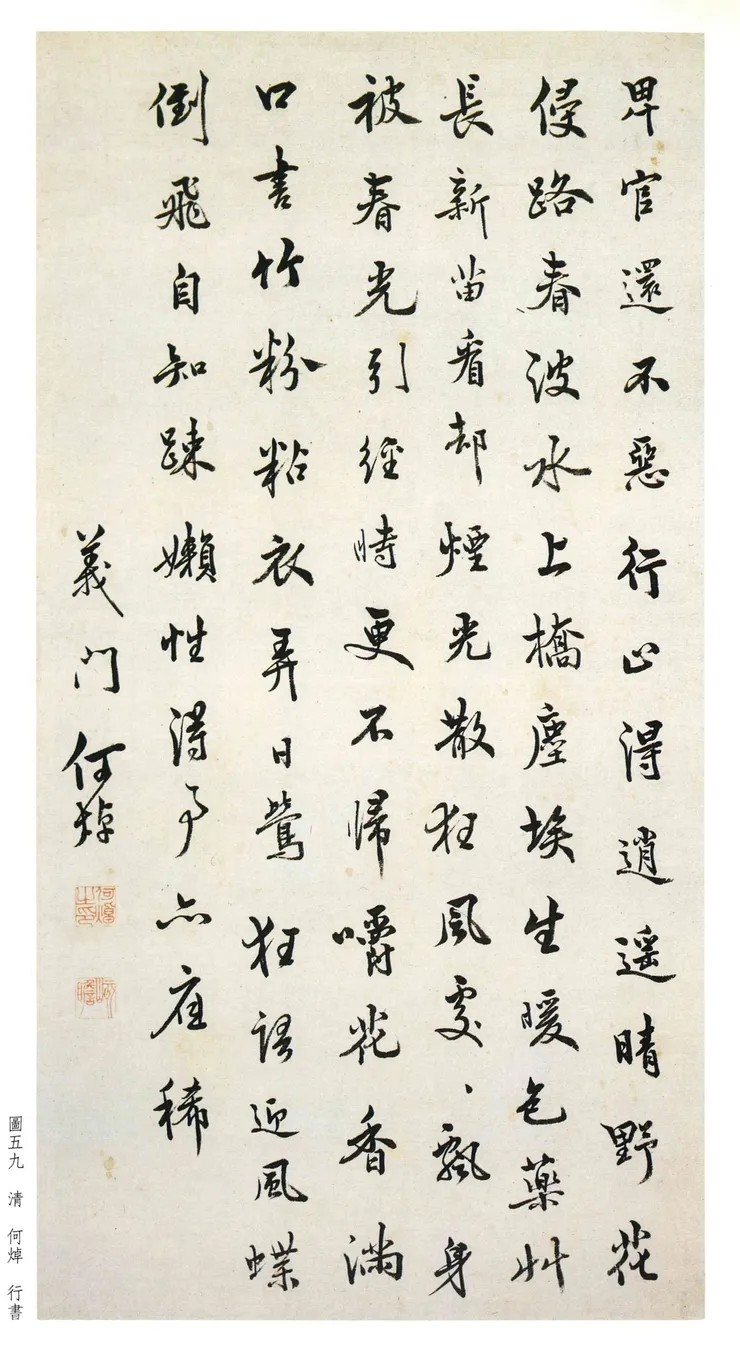 卑官還不惡行止得逍遥晴野花
侵路春波水上橋塵埃生暖色藥艸
長新苗看却煙光散狂風處、飄身
被春光引經時更不歸嚼花香滿
口書竹粉粘衣弄日鶯狂語迎風蝶
倒飛自知踈嬾性得事亦應稀
義門何焯
何焯之印
屺瞻
圖五九 清 何焯 行書